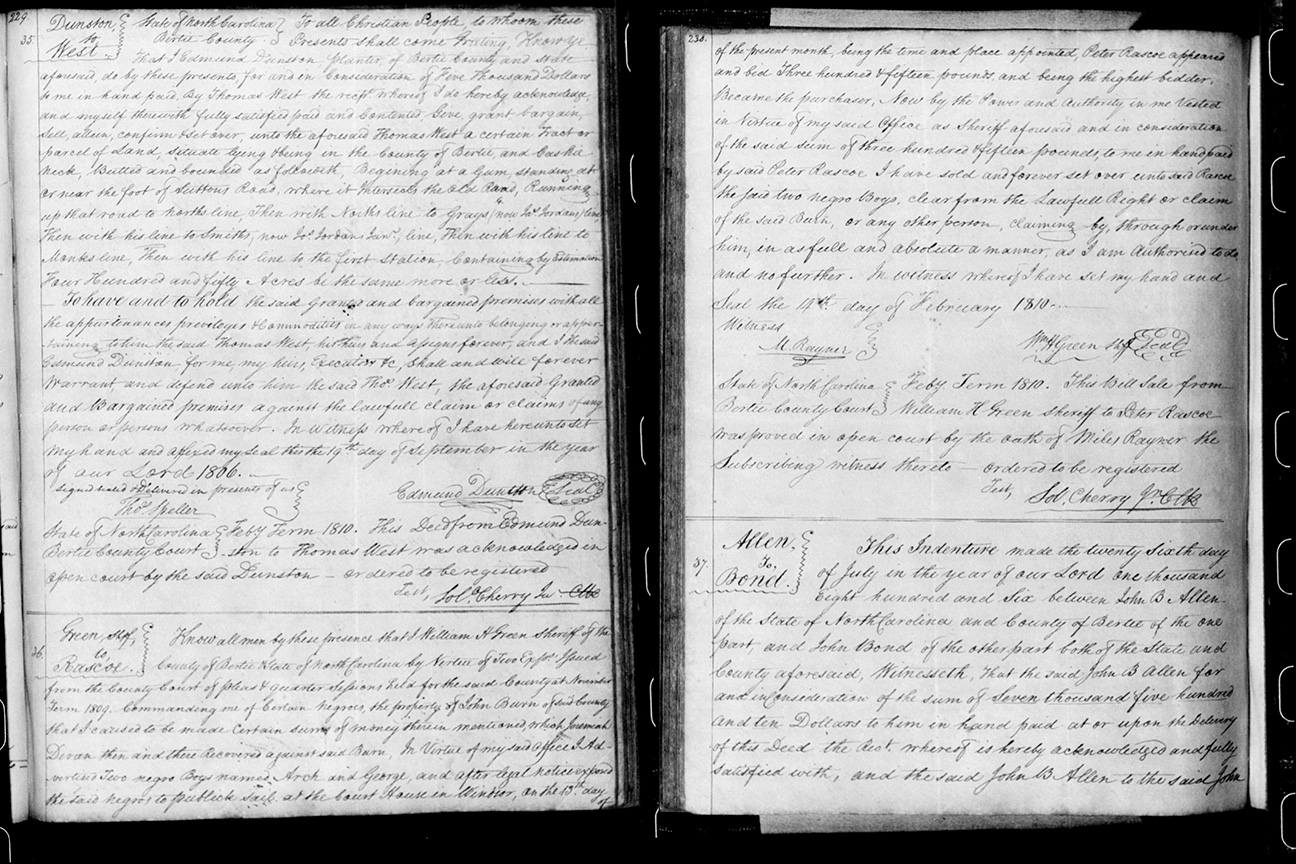 229.
35.
Dunston,
to
West.
State of North Carolina
Bertie County.
To all Christian People to whom these
Presents shall come Greeting, Know ye
That I Edmund Dunston Planter, of Bertie County and State
aforesaid, do by these presents, for and in Consideration of Five Thousand Dollars
to me in hand paid, By Thomas West the rect. whereof I do hereby acknowledge,
and myself therewith fully satisfied paid and Contented Give, grant bargain,
sell, alien, confirm & set over, unto the aforesaid Thomas West a certain Tract or
parcel of Land, situate lying & being in the County of Bertie, and Caskie
neck, Butted and bounded as followeth, Begining at a Gum, standing at
or near the foot of Suttons Road, where it Intersects the old Road, Running
up that road to Norths line, Then with Norths line to Grays (now Jas. Jordans) line
Then with his line to Smiths, now Jos. Jordans Junr., line, Then with his line to
Monks line, Then with his line to the first Station, Containing by Estimation
Four Hundred and fifty Acres be the same more or less.
To have and to hold the said Granted and bargained premises with all
the appurtenances previleges & Commodities in any ways thereunto belonging or apper-
taining to him the said Thomas West, his Heirs and Assigns forever, and I the said
Edmund Dunston for me, my heirs, Executors &c, Shall and will forever
Warrant and defend unto him the said Thos. West, the aforesaid Granted
and Bargained premises against the lawfull claim or claims of any
person or persons whatsoever. In Witness whereof I have hereunto set
my hand and affixed my seal this the 19th day of September in the year
of our Lord 1806.
Signed sealed & Delivered in presents of us
Edmund Dunston Seal
Thos. Speller
State of North Carolina
Bertie County Court
Feby Term 1810. This Deed from Edmund Dun-
ston to Thomas West was acknowledged in
open court by the said Dunston – ordered to be registered
Test, Sol. Cherry Jr. Clk
36.
Green, Shf,
to,
Rascoe.
Know all men by these presence that I William H Green Sheriff of the
County of Bertie & State of North Carolina by Virtue of Two Issued
from the County Court of pleas & quarter Sessions held for the said County at November
Term 1809. Commanding me of Certain negroes, the property of John Burn of said County
that I caused to be made Certain sums of money therein mentioned, which Jeremiah
then and there Recovered against said Burn, In Virtue of my said Office I Ad-
vertised Two negro Boys named, Arch and George, and after legal notice expos'd
the said negros to publick sail at the Court House in Windsor, on the 13th day
of
230.
of the present month, being the time and place appointed, Peter Rascoe appeared
and bid Three hundred & fifteen pounds and being the highest bidder.
Became the purchaser, Now by the Power and Authority, in me Vested
in Virtue of my said Office as Sheriff aforesaid and in consideration
of the said sum of three hundred & fifteen pounds, to me in hand paid
by said Peter Rascoe I have sold and forever set over unto said Rascoe
the said two negro Boys, clear from the Lawfull Right or claim
of the said Burn, or any other person, claiming by, through or under
him, in as full and absolute a manner, as I am Authorised to do
and no further. In witness whereof I have set my hand and
Seal the 14th. day of February 1810.
Witness
M Rayner
Wm H Green Shf Seal
State of North Carolina
Bertie County Court
Feby Term 1810. This Bill Sale from
William H Green Sheriff to Peter Rascoe
was proved in open court by the oath of Miles Rayner the
Subscribing witness thereto – ordered to be registered
Test, Sol. Cherry Jr. Clk
37.
Allen.
To,
Bond.
This Indenture made the twenty Sixth day
of July in the year of our Lord one thousand
Eight hundred and Six between John B Allen
of the State of North Carolina and County of Bertie of the one
part, and John Bond of the other part both of the State and
County aforesaid, Witnesseth, That the said John B Allen for
and in Consideration of the sum of Seven thousand five hundred
and ten Dollars to him in hand paid at or upon the Delivery
of this Deed the Rect. whereof is hereby acknowledged and fully
satisfied with, and the said John B Allen to the said John